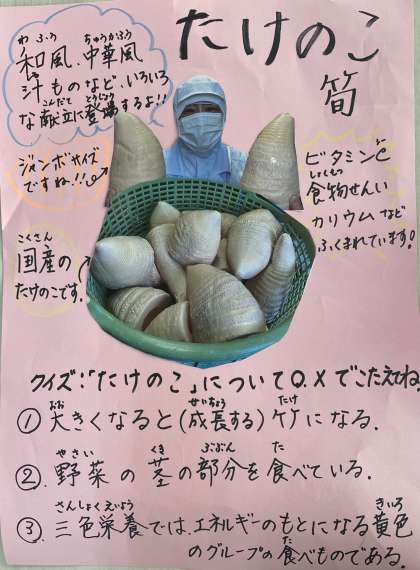 たけのこ
筍
わふう ちゅうかふう
和風、中華風
汁ものなど、いろいろ
こんだて とうじょう
な献立に登場するよ!!
ジャンボサイズ
ですね!!
ビタミンと
しょくもつ
食物せんい
カリウムなど
ふくまれています!
こくさん
国産の
たけのこです。
クイズ:「たけのこ」について〇.×でこたえてね。
おお せいちょう たけ
① 大きくなると(成長する)竹になる.
やさい くき ぶぶん た
②.野菜の茎の部分を食べている.
さんしょくえいよう きいろ
③.三色栄養では、エネルギーのもとになる黄色
た
のグループの食べものである.